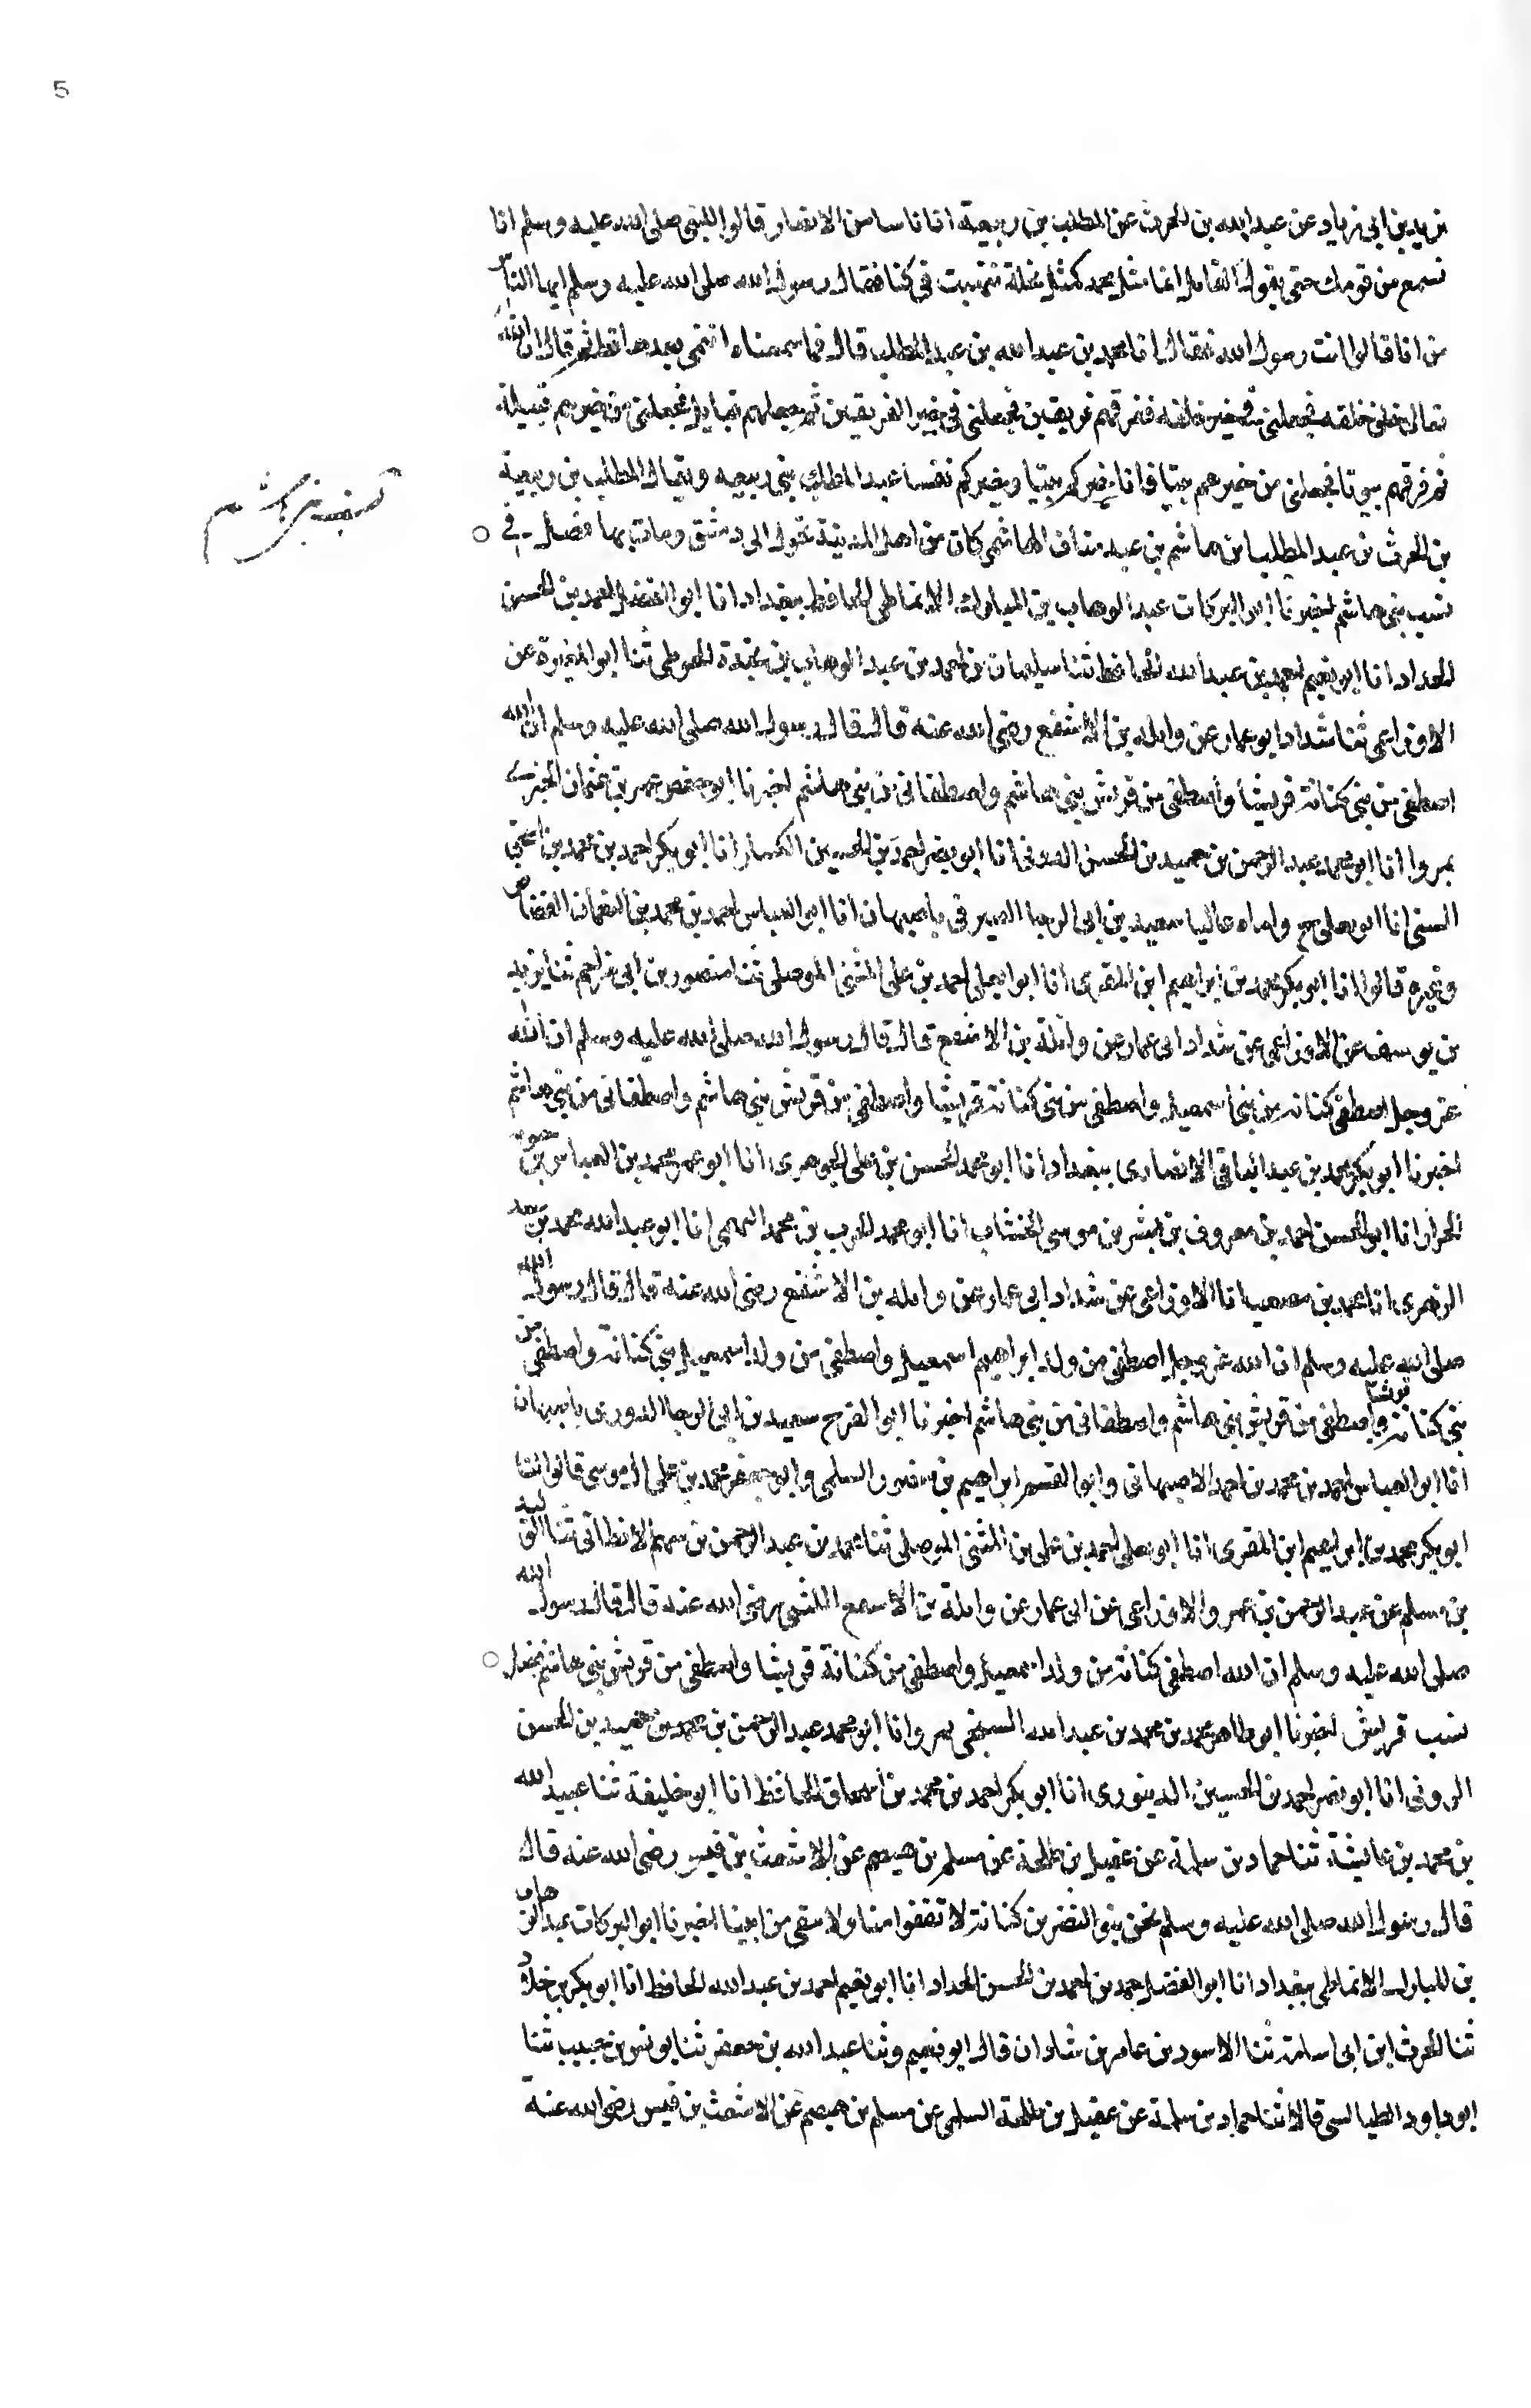 5
يزيد بن ابي زياد عن عبد الله بن الحرث عن المطلب بن ربيعة ان اناسا من الانصار قالوا للنبي صلى الله عليه وسلم انا
نسمع من قومك حتى يقول القايل انما مثل محمد كمثل نخلة نبتت في كبا فقال رسول الله صلى الله عليه وسلم ايها الناس
من انا قالوا انت رسول الله فقال انا محمد بن عبد الله بن عبد المطلب قال فما سمعناه انتمى بعدها قط ثم قال ان الله
تعالى خلق خلقه فجعلني في خير خلقه ففرقهم فريقين فجعلني في خير الفريقين ثم جعلهم قبايل فجعلني من خيرهم قبيلة
ثم فرقهم بيوتا فجعلني من خيرهم بيتا فانا خيركم بيتا وخيركم نفسا عبد المطلب بن ربيعه ويقال المطلب بن ربيعة
نسب بني هاشم
بن الحرث بن عبد المطلب بن هاشم بن عبد مناف الهاشمي كان من اهل المدينة تحول الى دمشق ومات بها فصل في
نسب بني هاشم اخبرنا ابو البركات عبد الوهاب بن المبارك الانماطي الحافظ ببغداد انا ابو الفضل احمد بن الحسن
الحداد انا ابو نعيم احمد بن عبد الله الحافظ ثنا سليمان بن احمد بن عبد الوهاب بن نجدة الحوطي ثنا ابو المغيرة عن
الاوزاعي ثنا شداد ابو عمار عن واثله بن الاسقع رضي الله عنه قال قال رسول الله صلى الله عليه وسلم ان الله
اصطفى من بني كنانة قريشا واصطفى من قريش بني هاشم واصطفاني من بني هاشم اخبرنا ابو حفص عمر بن عثمان الجنزي
بمروا انا ابو محمد عبد الرحمن بن حميد بن الحسن الدوني انا ابو نصر احمد بن الحسين الكسار انا ابو بكر احمد بن محمد بن اسحق
السني انا ابو يعلى ح واناه عاليا سعيد بن ابي الرجا الصيرفي باصبهان انا ابو العباس احمد بن محمد بن النعمان القصاص
وغيره قالوا انا ابو بكر محمد بن ابراهيم ابن المقرى انا ابو يعلى احمد بن علي المثنى الموصلي ثنا منصور بن ابي مزاحم ثنا يزيد
بن يوسف عن الاوزاعي عن شداد ابي عمار عن واثلة بن الاسقع قال قال رسول الله صلى الله عليه وسلم ان الله
عز وجل اصطفى كنانة من بني اسمعيل واصطفى من بني كنانة قريشا واصطفى من قريش بني هاشم واصطفاني من بني هاشم
اخبرنا ابو بكر محمد بن عبد الباقي الانصارى ببغداد انا ابو محمد الحسن بن علي الجوهرى انا ابو عمر محمد بن العباس بن حيويه
الخزاز انا ابو الحسن احمد بن معروف بن بشر بن موسى الخشاب انا ابو محمد الحرث بن محمد التميمي انا ابو عبد الله محمد بن سعد
الزهرى انا محمد بن مصعب انا الاوزاعي عن شداد ابي عمار عن واثله بن الاسقع رضي الله عنه قال قال رسول الله
صلى الله عليه وسلم ان الله عز وجل اصطفى من ولد ابراهيم اسمعيل واصطفى من ولد اسمعيل بني كنانة واصطفى من
بني كنانة قريشا واصطفى من قريش بني هاشم واصطفاني من بني هاشم اخبرنا ابو الفرج سعيد بن ابي الرجا الدورى باصبهان
انا ابو العباس احمد بن محمد بن احمد الاصبهاني وابو القسم ابراهيم بن منصور السلمي وابو جعفر محمد بن علي الموسى قالوا انبا
ابو بكر محمد بن ابراهيم ابن المقرى انا ابو يعلى احمد بن علي بن المثنى الموصلي ثنا محمد بن عبد الرحمن بن سهم الانطاكي ثنا الوليد
بن مسلم عن عبد الرحمن بن عمرو الاوزاعي عن ابي عمار عن واثلة بن الاسقع الليثي رضي الله عنه قال قال رسول الله
صلى الله عليه وسلم ان الله اصطفى كنانة من ولد اسمعيل واصطفى من كنانة قريشا واصطفى من قريش بني هاشم فصل
نسب قريش اخبرنا ابو طاهر محمد بن محمد بن عبد الله السنجي بمروا انا ابو محمد عبد الرحمن بن محمد بن حميد بن الحسن
الدوني انا ابو نصر احمد بن الحسين الدينورى انا ابو بكر احمد بن محمد بن اسحاق الحافظ انا ابو خليفة ثنا عبيد الله
بن محمد بن عائشة ثنا حماد بن سلمة عن عقيل بن طلحة عن مسلم بن هيصم عن الاشعث بن قيس رضي الله عنه قال
قال رسول الله صلى الله عليه وسلم نحن بنو النضر بن كنانة لا نقفوا امنا ولا ننتفي من ابينا اخبرنا ابو البركات عبد الوهاب
بن المبارك الانماطي ببغداد انا ابو الفضل احمد بن احمد بن الحسن الحداد انا ابو نعيم احمد بن عبد الله الحافظ انا ابو بكر بن خلاد
ثنا الحرث ابن ابي اسامة ثنا الاسود بن عامر بن شاذان قال ابو نعيم وثنا عبد الله بن جعفر ثنا يونس بن حبيب ثنا
ابو داود الطيالسي قالا ثنا حماد بن سلمة عن عقيل بن طلحة السلمي عن مسلم بن هيصم عن الاشعث بن قيس رضي الله عنه